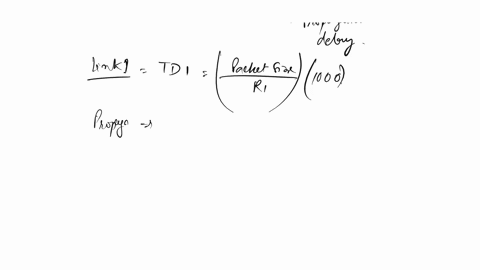 delay.
Link1 = TD1 = (Packet Size / R1) (1000)
Propga →